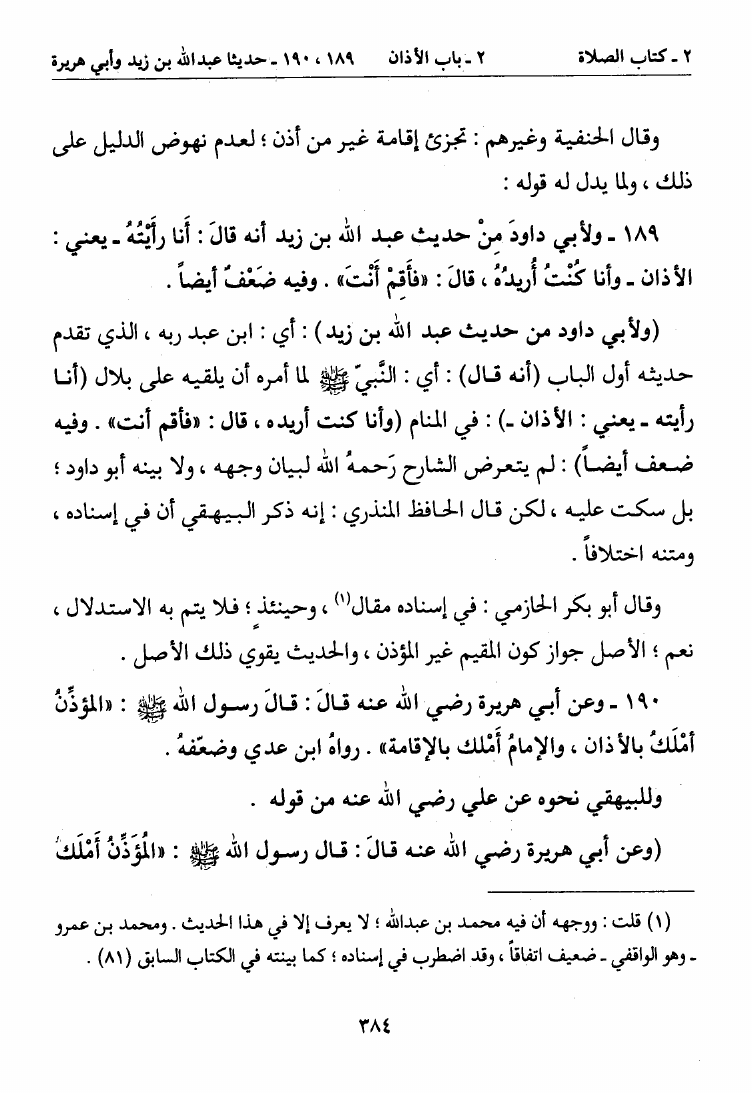 ٢ ـ كتاب الصلاة ٢ ـ باب الأذان ١٨٩ ، ١٩٠ ـ حديثا عبدالله بن زيد وأبي هريرة
وقال الحنفية وغيرهم : تجزئ إقامة غير من أذن ؛ لعدم نهوض الدليل على
ذلك ، ولما يدل له قوله :
١٨٩ ـ ولأبي داودَ مِنْ حديث عبد الله بن زيد أنه قالَ : أَنا رأَيْتُهُ ـ يعني :
الأذان ـ وأنا كُنْتُ أُريدُهُ ، قالَ : «فأَقِمْ أَنْتَ» . وفيه ضَعْفٌ أيضاً .
(ولأبي داود من حديث عبد الله بن زيد) : أي : ابن عبد ربه ، الذي تقدم
حديثه أول الباب (أنه قال) : أي : النَّبيّ ﷺ لما أمره أن يلقيه على بلال (أنا
رأيته ـ يعني : الأذان ـ) : في المنام (وأنا كنت أريده ، قال : «فأقم أنت» . وفيه
ضعف أيضاً) : لم يتعرض الشارح رَحمهُ الله لبيان وجهه ، ولا بينه أبو داود ؛
بل سكت عليه ، لكن قال الحافظ المنذري : إنه ذكر البيهقي أن في إسناده ،
ومتنه اختلافاً .
وقال أبو بكر الحازمي : في إسناده مقال(١) ، وحينئذٍ ؛ فلا يتم به الاستدلال ،
نعم ؛ الأصل جواز كون المقيم غير المؤذن ، والحديث يقوي ذلك الأصل .
١٩٠ ـ وعن أبي هريرة رضي الله عنه قالَ : قالَ رسول الله ﷺ : «المؤذِّنُ
أمْلَكُ بالأذان ، والإمامُ أَمْلك بالإقامة» . رواهُ ابن عدي وضعّفهُ .
وللبيهقي نحوه عن علي رضي الله عنه من قوله .
(وعن أبي هريرة رضي الله عنه قالَ : قال رسول الله ﷺ : «المُؤَذِّنُ أَمْلَكُ
(١) قلت : ووجهه أن فيه محمد بن عبدالله ؛ لا يعرف إلا في هذا الحديث . ومحمد بن عمرو
ـ وهو الواقفي ـ ضعيف اتفاقاً ، وقد اضطرب في إسناده ؛ كما بينته في الكتاب السابق (٨١) .
٣٨٤